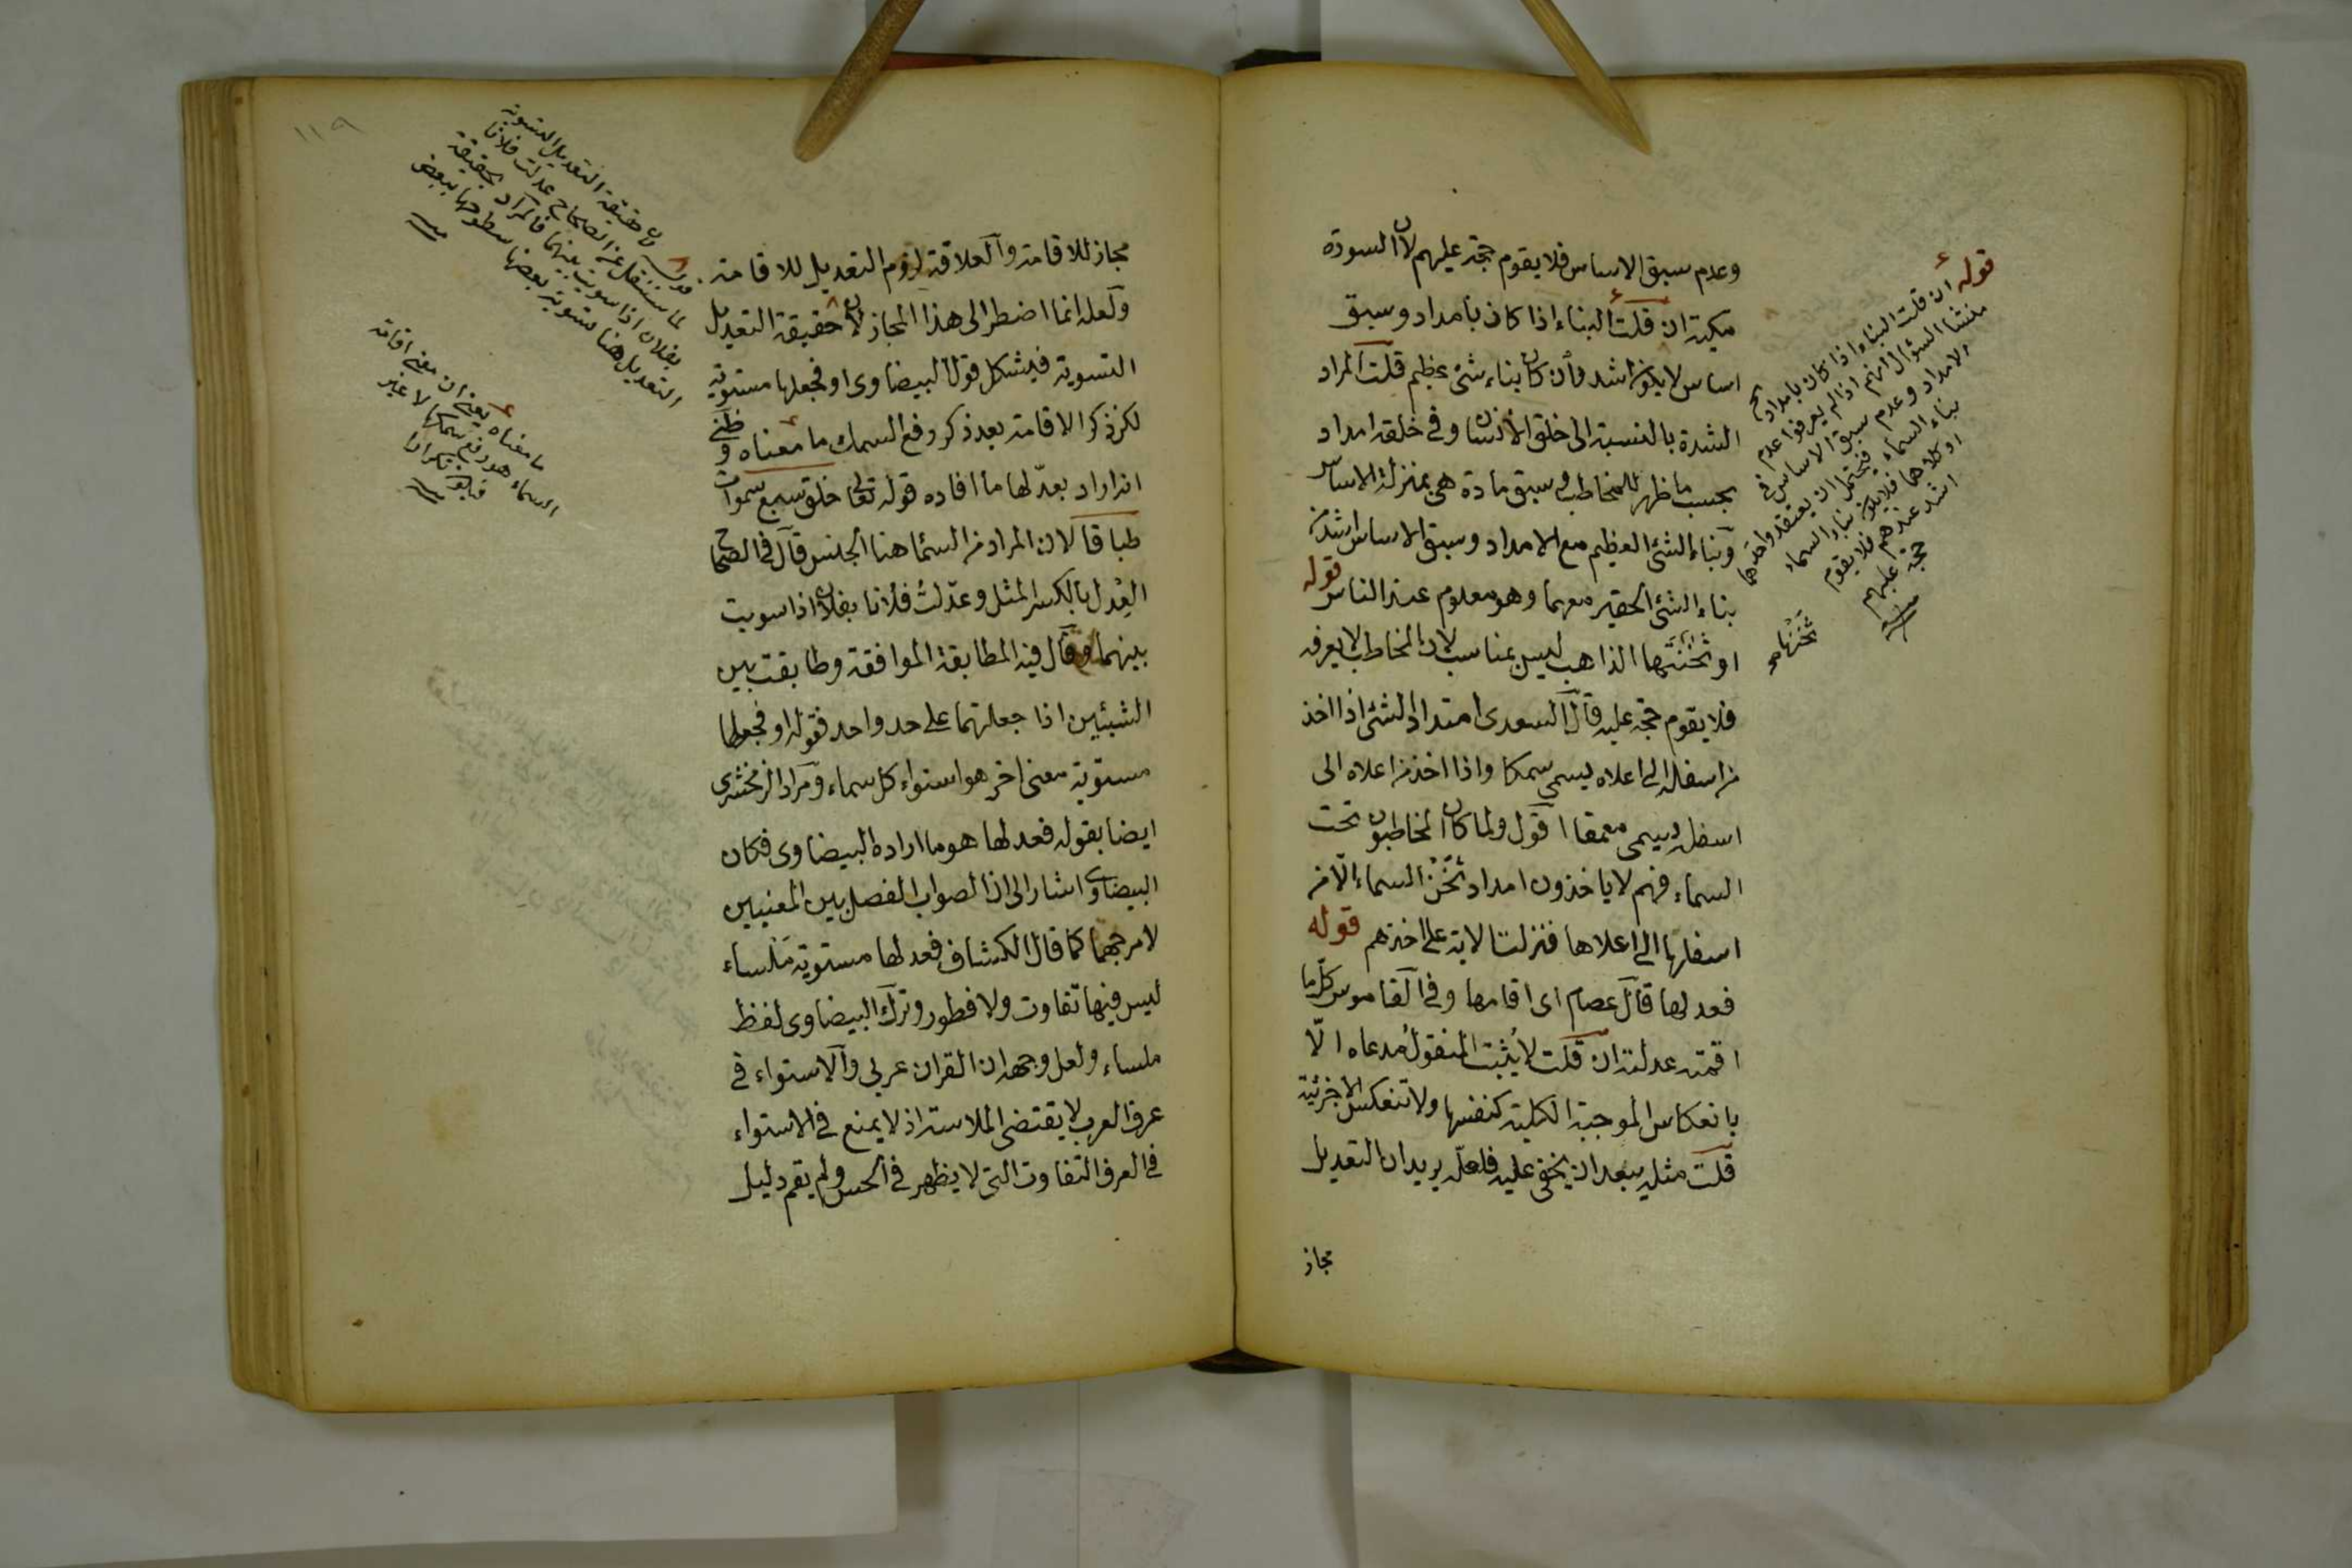 وعدم سبق الاساس فلا يقوم حجة عليهم لان السورة
مكية ان قلت البناء اذا كان بامداد وسبق
اساس لا يكون اشد وان كان بناء شئ عظيم قلت المراد
الشدة بالنسبة الى خلق الانسان وفى خلقه امداد
بحسب ما ظهر للمخاطب وسبق مادة هى بمنزلة الاساس
وبناء الشئ العظيم مع الامداد وسبق الاساس اشد من
بناء الشئ الحقير معهما وهو معلوم عند الناس قوله
او ثخنها الذاهب ليس بمناسب لان المخاطب لا يعرفه
فلا يقوم حجة عليه قال السعدى امتداد الشئ اذا اخذ
من اسفله الى اعلاه يسمى سمكا واذا اخذ من اعلاه الى
اسفل يسمى عمقا اقول ولما كان المخاطبون تحت
السماء فهم لا ياخذون امداد ثخن السماء الا من
اسفلها الى اعلاها فنزلت الاية على اخذهم قوله
فعدلها قال عصام اى اقامها وفى القاموس كل ما
اقمته عدلته ان قلت لا يثبت المنقول مدعاه الا
بانعكاس الموجبة الكلية كنفسها ولا تنعكس الا جزئية
قلت مثله يبعد ان يخفى عليه فلعله يريد ان التعديل
مجاز
قوله ان قلت البناء اذا كان بامداد الخ
منشأ السؤال انهم اذا لم يعرفوا عدم
الامداد وعدم سبق الاساس فى
بناء السماء فيحتمل ان يعتقدوا احدهما
او كلاهما فلا يكون بناء السماء
اشد عندهم فلا يقوم
حجة عليهم
ثخنها صح
١١٩
مجاز للاقامة والعلاقة لزوم التعديل للاقامة
ولعله انما اضطر الى هذا المجاز لان حقيقة التعديل
التسوية فيشكل قول البيضاوى او فجعلها مستوية
لكن ذكر الاقامة بعد ذكر رفع السمك ما معناه وظنى
انه اراد بعدلها ما افاده قوله تعالى خلق سبع سموات
طباقا لان المراد من السماء هنا الجنس قال فى الصحاح
العدل بالكسر المثل وعدلت فلانا بفلان اذا سويت
بينهما وقال فيه المطابقة الموافقة وطابقت بين
الشيئين اذا جعلتهما على حد واحد فقوله او فجعلها
مستوية معنى اخر هو استواء كل سماء ومراد الزمخشرى
ايضا بقوله فعدلها هو ما اراده البيضاوى فكان
البيضاوى اشار الى ان الصواب الفصل بين المعنيين
لا مرجحهما كما قال الكشاف فعدلها مستوية ملساء
ليس فيها تفاوت ولا فطور وترك البيضاوى لفظ
ملساء ولعل وجهه ان القران عربى والاستواء فى
عرف العرب لا يقتضى الملاسة اذ لا يمنع فى الاستواء
فى العرف التفاوت التى لا يظهر فى الحس ولم يقم دليل
لان حقيقة التعديل التسوية
لما ستنقل عن الصحاح عدلت فلانا
بفلان اذا سويت بينهما فالمراد بحقيقة
التعديل هنا تسوية بعضها سطوحها ببعض
ما معناه يعنى ان معنى اقامة
السماء هو رفع سمكها لا غير
تكرارا